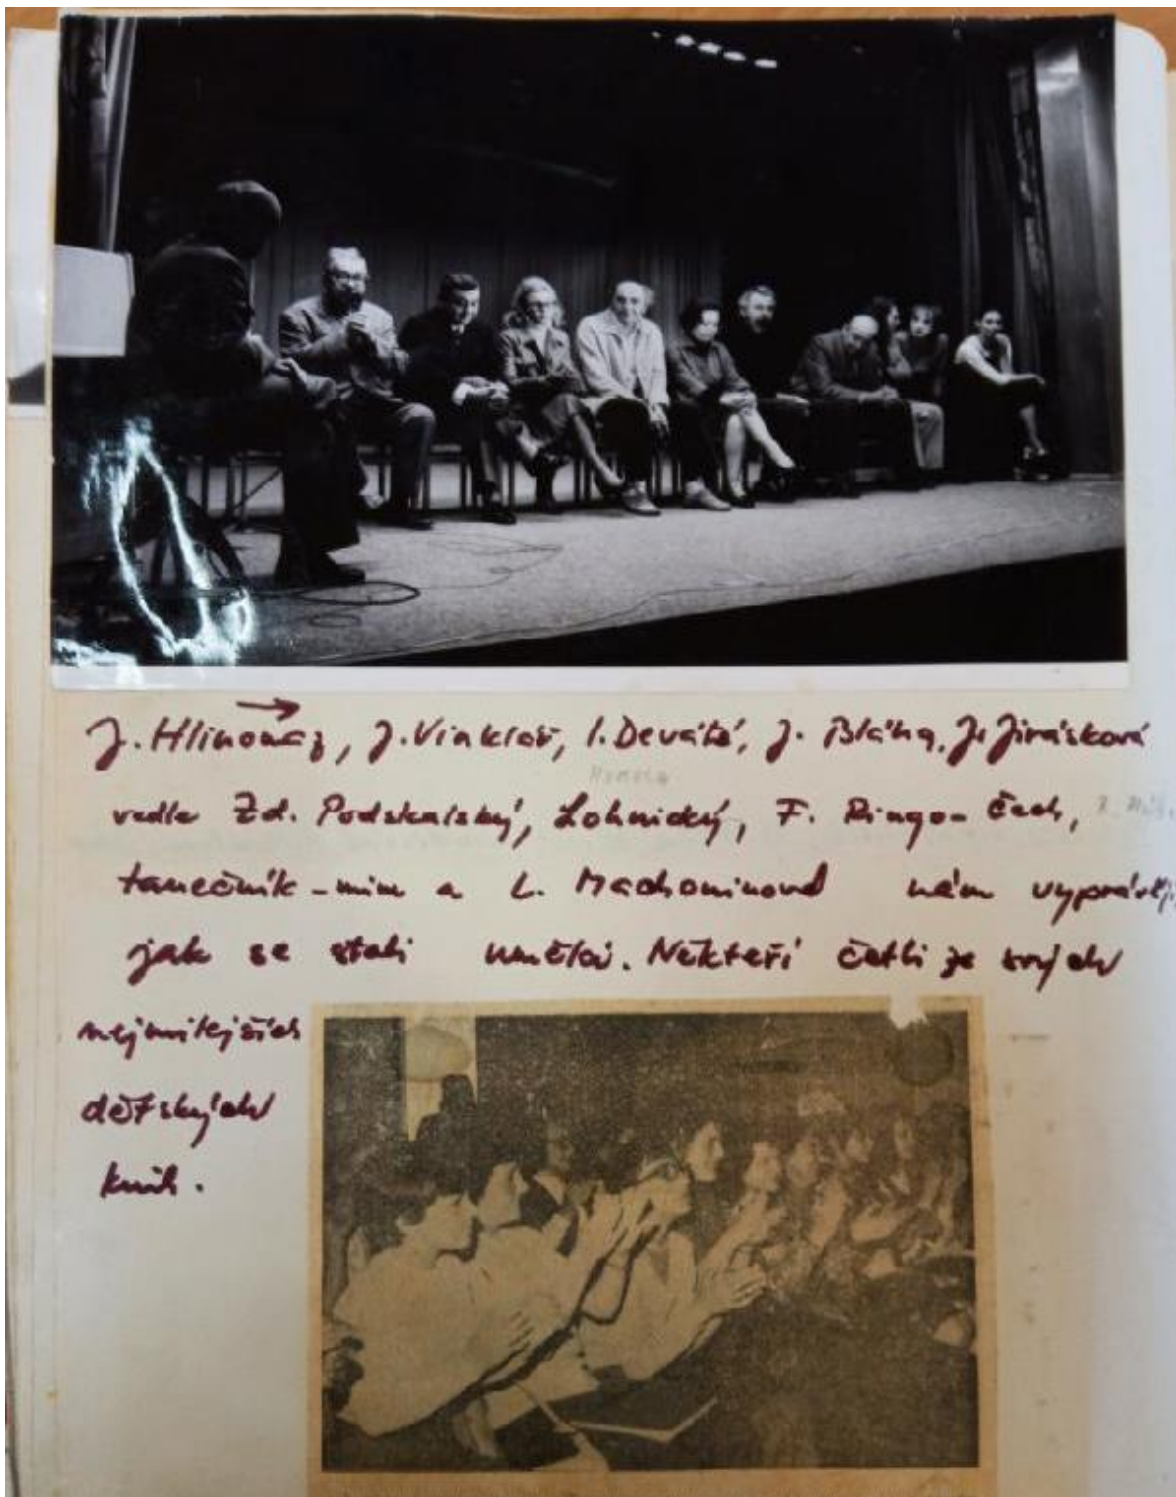 J. Hlinomaz, J. Vinklář, I. Devátá, J. Bláha, J. Jirásková
vedle Zd. Podskalský, Lohnický, F. Ringo-Čech,
tanečník-mim a L. Machoninová nám vyprávěli,
jak se stali umělci. Někteří četli ze svých
nejmilejších
dětských
knih.